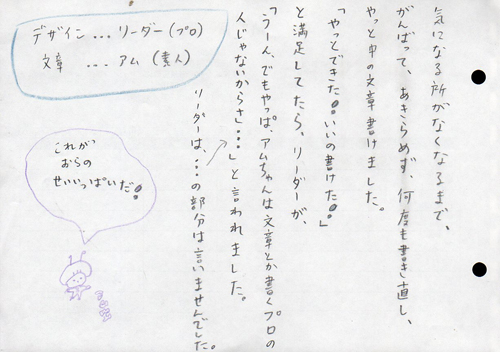 気になる所がなくなるまで、
がんばって、あきらめず、何度も書き直し、
やっと中の文章書けました。
「やっとできた!いいの書けた!」
と満足してたら、リーダーが、
「うーん、でもやっぱ、アムちゃんは文章とか書くプロの
人じゃないからさ‥‥」と言われました。
リーダーは、‥‥の部分は言いませんでした。
デザイン…リーダー(プロ)
文章 …アム(素人)
これが
おらの
せいいっぱいだ!